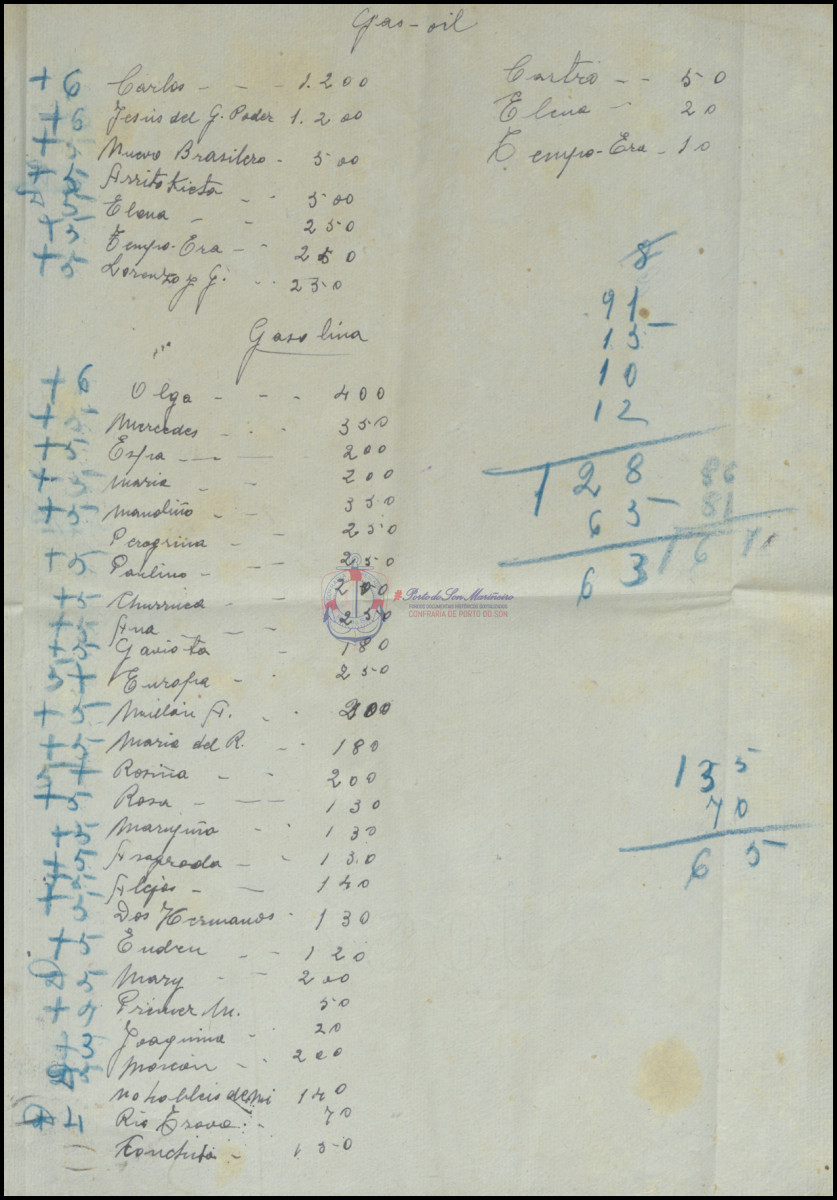 Gas-oil
+ 6 Carlos - - - 1.200
+ 6 Jesús del G. Poder 1.200
+ 5 Nuevo Brasilero - 500
+ 5 Arritokieta - - 500
+ 5 Elena - - 250
+ 5 Tempo-Era - - 250
+ 5 Lorenzo y G. - - 250
Castro - - 50
Elena - 20
Tempo-Era - 10
Gasolina
+ 6 Olga - - - 400
+ 5 Mercedes - - 350
+ 5 Espa - - - 200
+ 5 Maria - - 200
+ 5 Manoliño - - 350
Peregrina - - 250
+ 5 Paulino - - 250
+ 5 Churruca - 200
+ 5 Ana - - 250
+ 5 Gaviota - 180
+ 5 Europa - 250
+ 5 Millán A. - - 200
+ 5 Maria del R. - - 180
+ 5 Rosiña - - 200
+ 5 Rosa - - - 130
+ 5 Maruxiña - - 130
+ 5 Asaprada - - 130
+ 5 Alejos - - 140
+ 5 Dos Hermanos - 130
+ 5 - - 120
5 Mary - - 200
+ Primer M. 50
3 Joaquina - 20
2 - 200
No habléis de mi 140
4 Rio Trava - - 70
Conchita - 130
8
91
15
10
12
128
65
63
86
81
167
135
70
65
#Porto do Son Mariñeiro
FONDOS DOCUMENTAIS HISTÓRICOS DIXITALIZADOS
CONFRARÍA DE PORTO DO SON